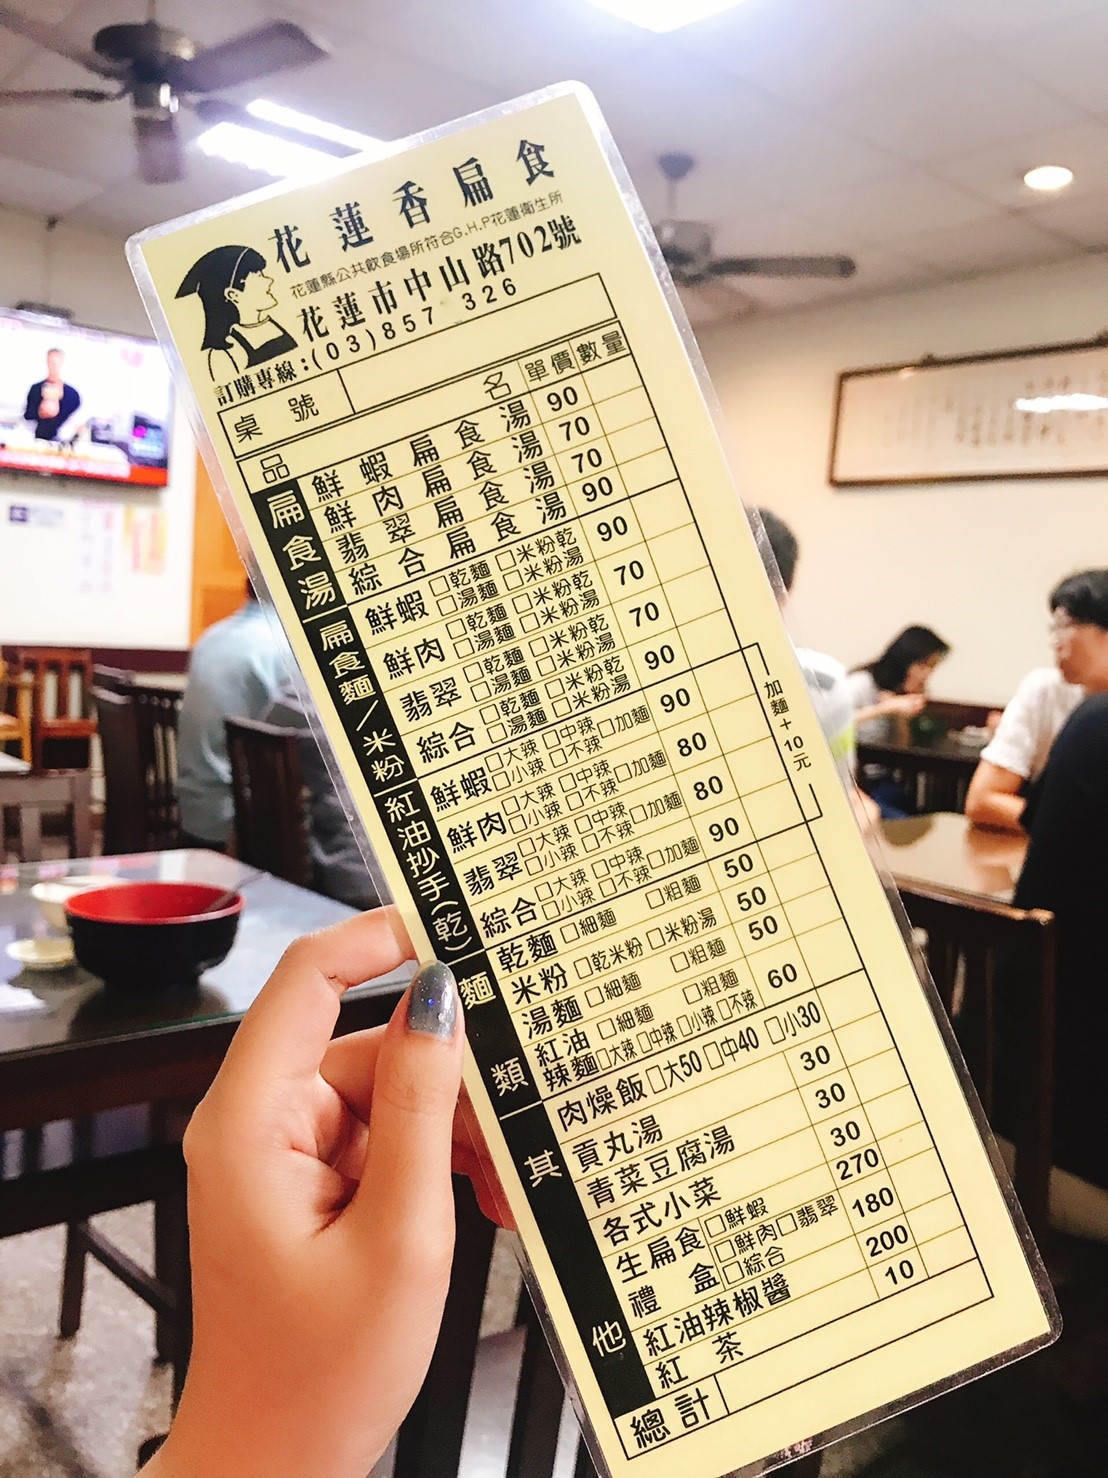 花蓮香扁食
花蓮縣公共飲食場所符合G.H.P花蓮衛生所
花蓮市中山路702號
訂購專線:(03)857 326
桌號
品名 單價 數量
扁食湯
鮮蝦扁食湯 90
鮮肉扁食湯 70
翡翠扁食湯 70
綜合扁食湯 90
扁食麵/米粉
鮮蝦 □乾麵 □米粉乾 □湯麵 □米粉湯 90
鮮肉 □乾麵 □米粉乾 □湯麵 □米粉湯 70
翡翠 □乾麵 □米粉乾 □湯麵 □米粉湯 70
綜合 □乾麵 □米粉乾 □湯麵 □米粉湯 90
紅油抄手(乾)
鮮蝦 □大辣 □中辣 □加麵 □小辣 □不辣 90
鮮肉 □大辣 □中辣 □加麵 □小辣 □不辣 80
翡翠 □大辣 □中辣 □加麵 □小辣 □不辣 80
綜合 □大辣 □中辣 □加麵 □小辣 □不辣 90
加麵+10元
麵類
乾麵 □細麵 □粗麵 50
米粉 □乾米粉 □米粉湯 50
湯麵 □細麵 □粗麵 50
紅油辣麵 □細麵 □粗麵 □大辣 □中辣 □小辣 □不辣 60
其他
肉燥飯 □大50 □中40 □小30
貢丸湯 30
青菜豆腐湯 30
各式小菜 30
生扁食禮盒 □鮮蝦 270
□鮮肉 □翡翠 180
□綜合 200
紅油辣椒醬
紅茶 10
總計